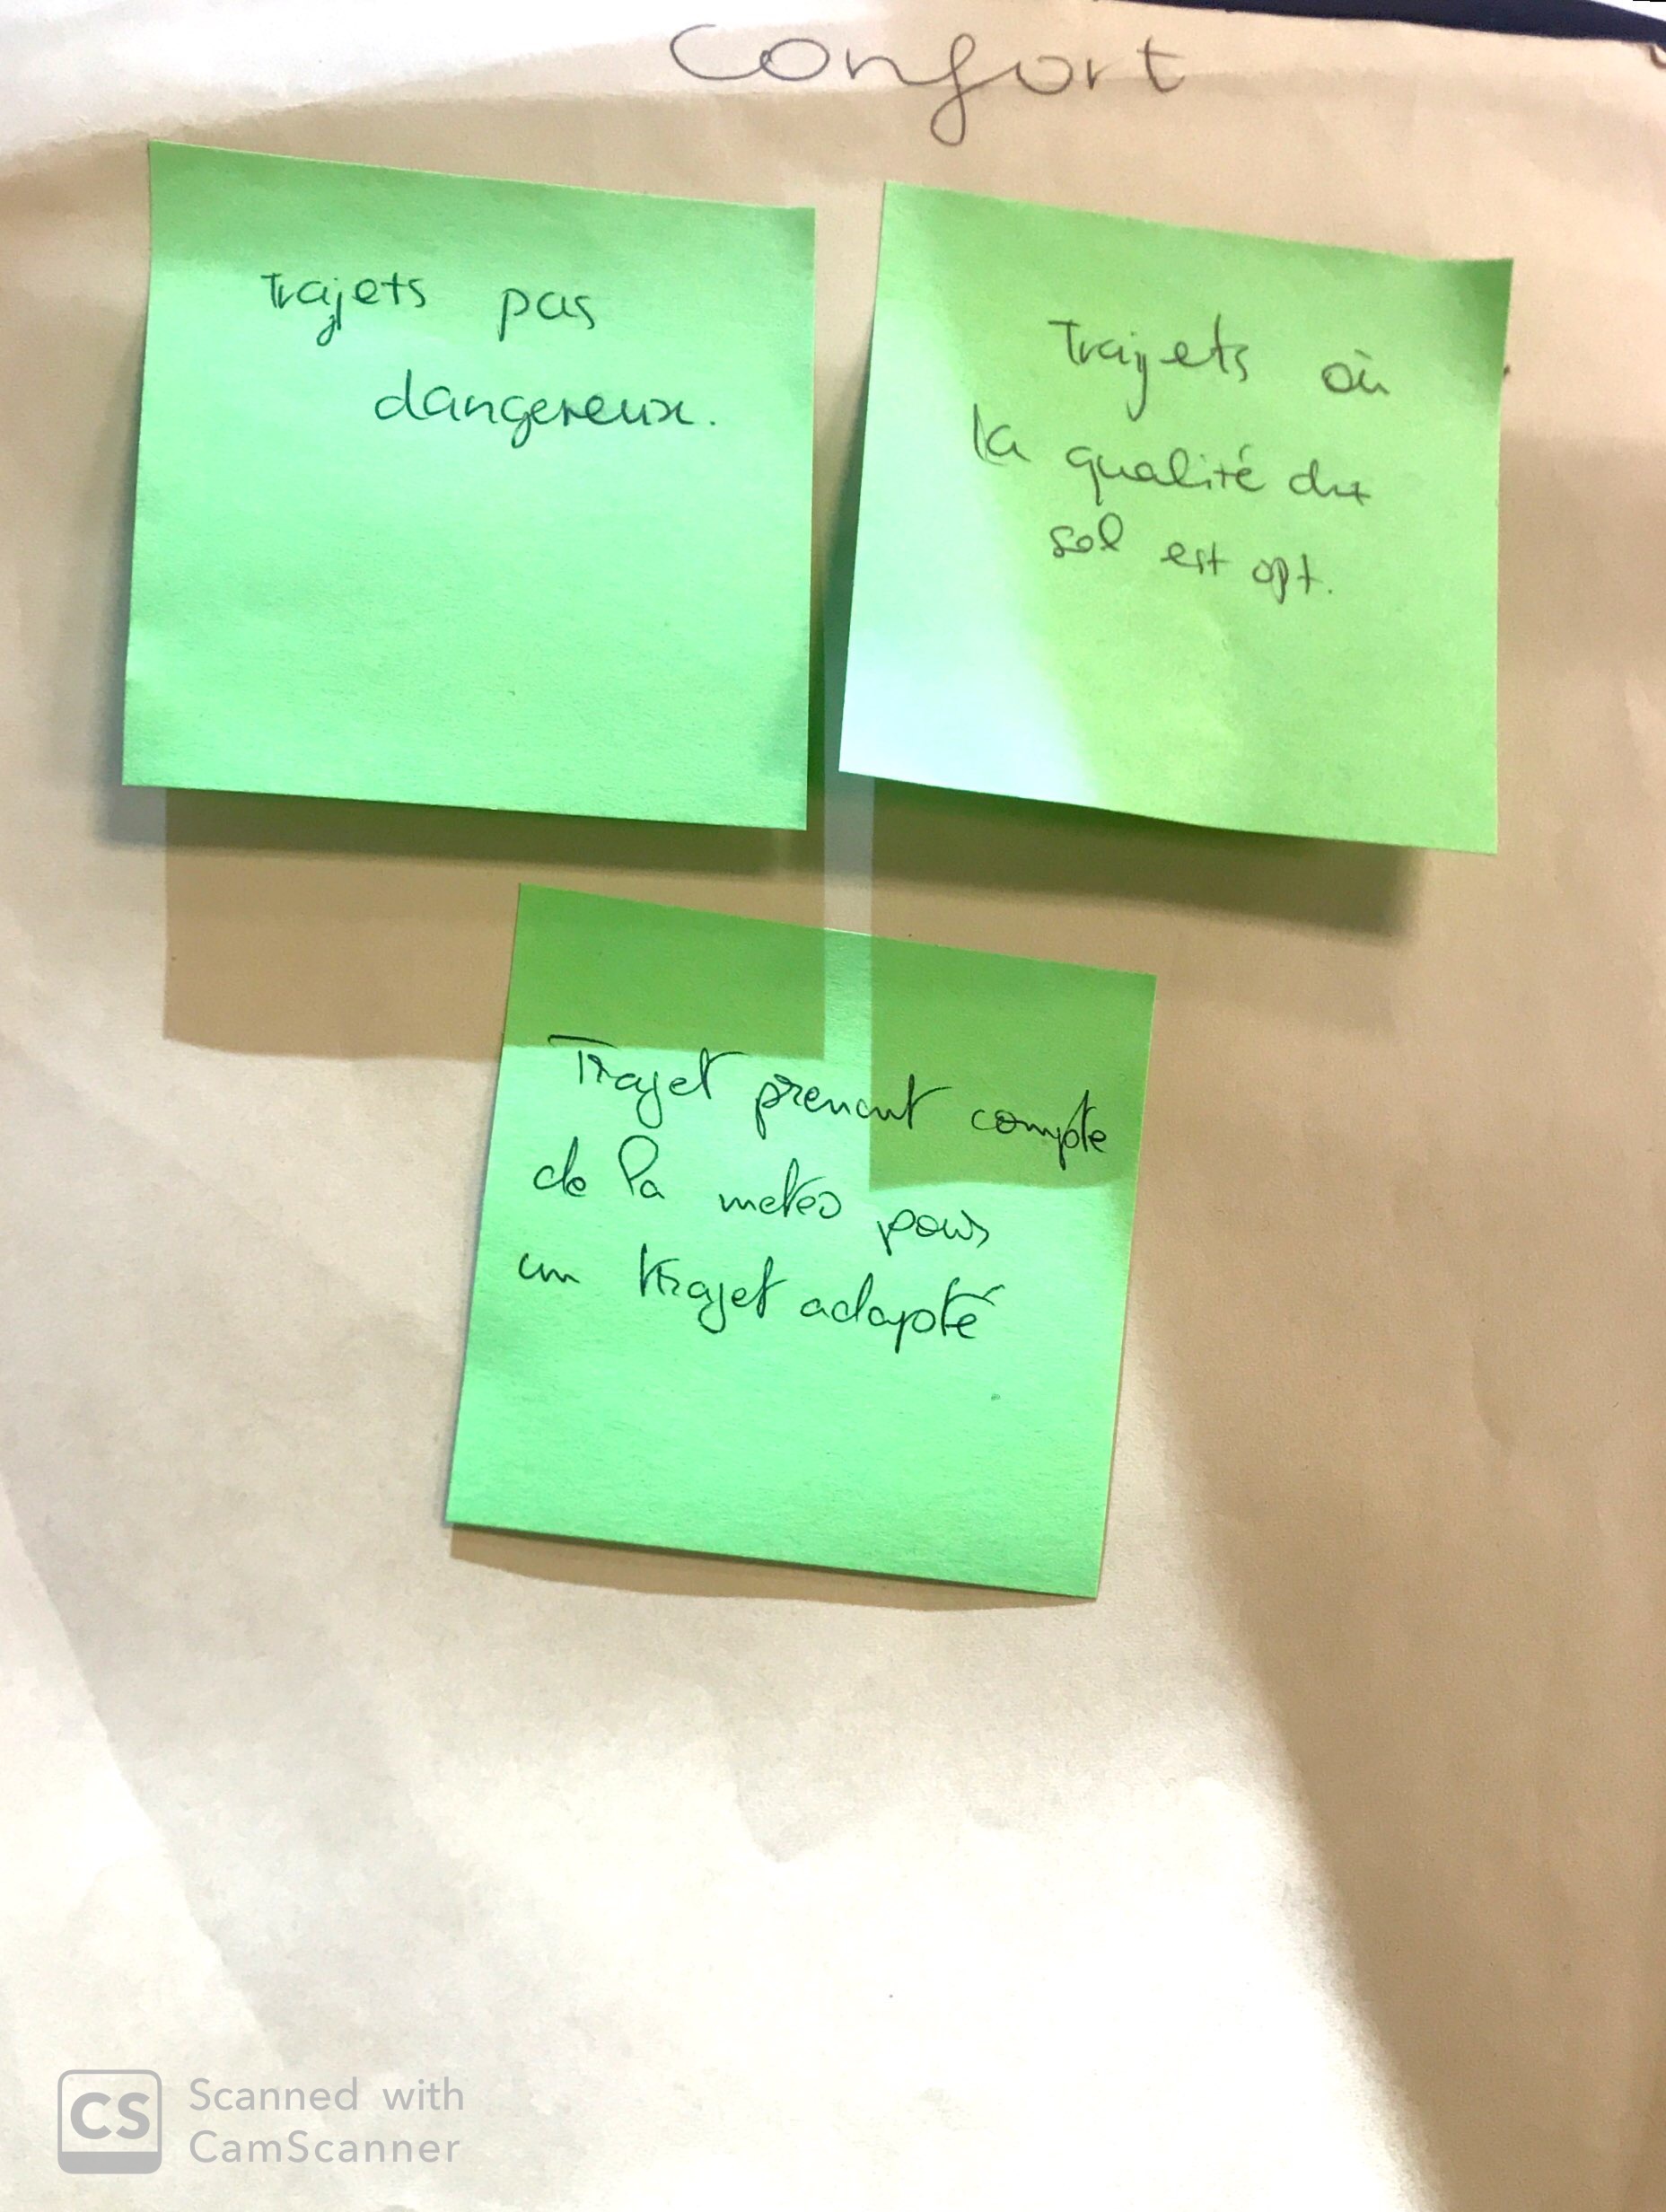 Confort
Trajets pas
dangereux.
Trajets où
la qualité du
sol est opt.
Trajet prenant compte
de la météo pour
un trajet adapté
CS
Scanned with
CamScanner